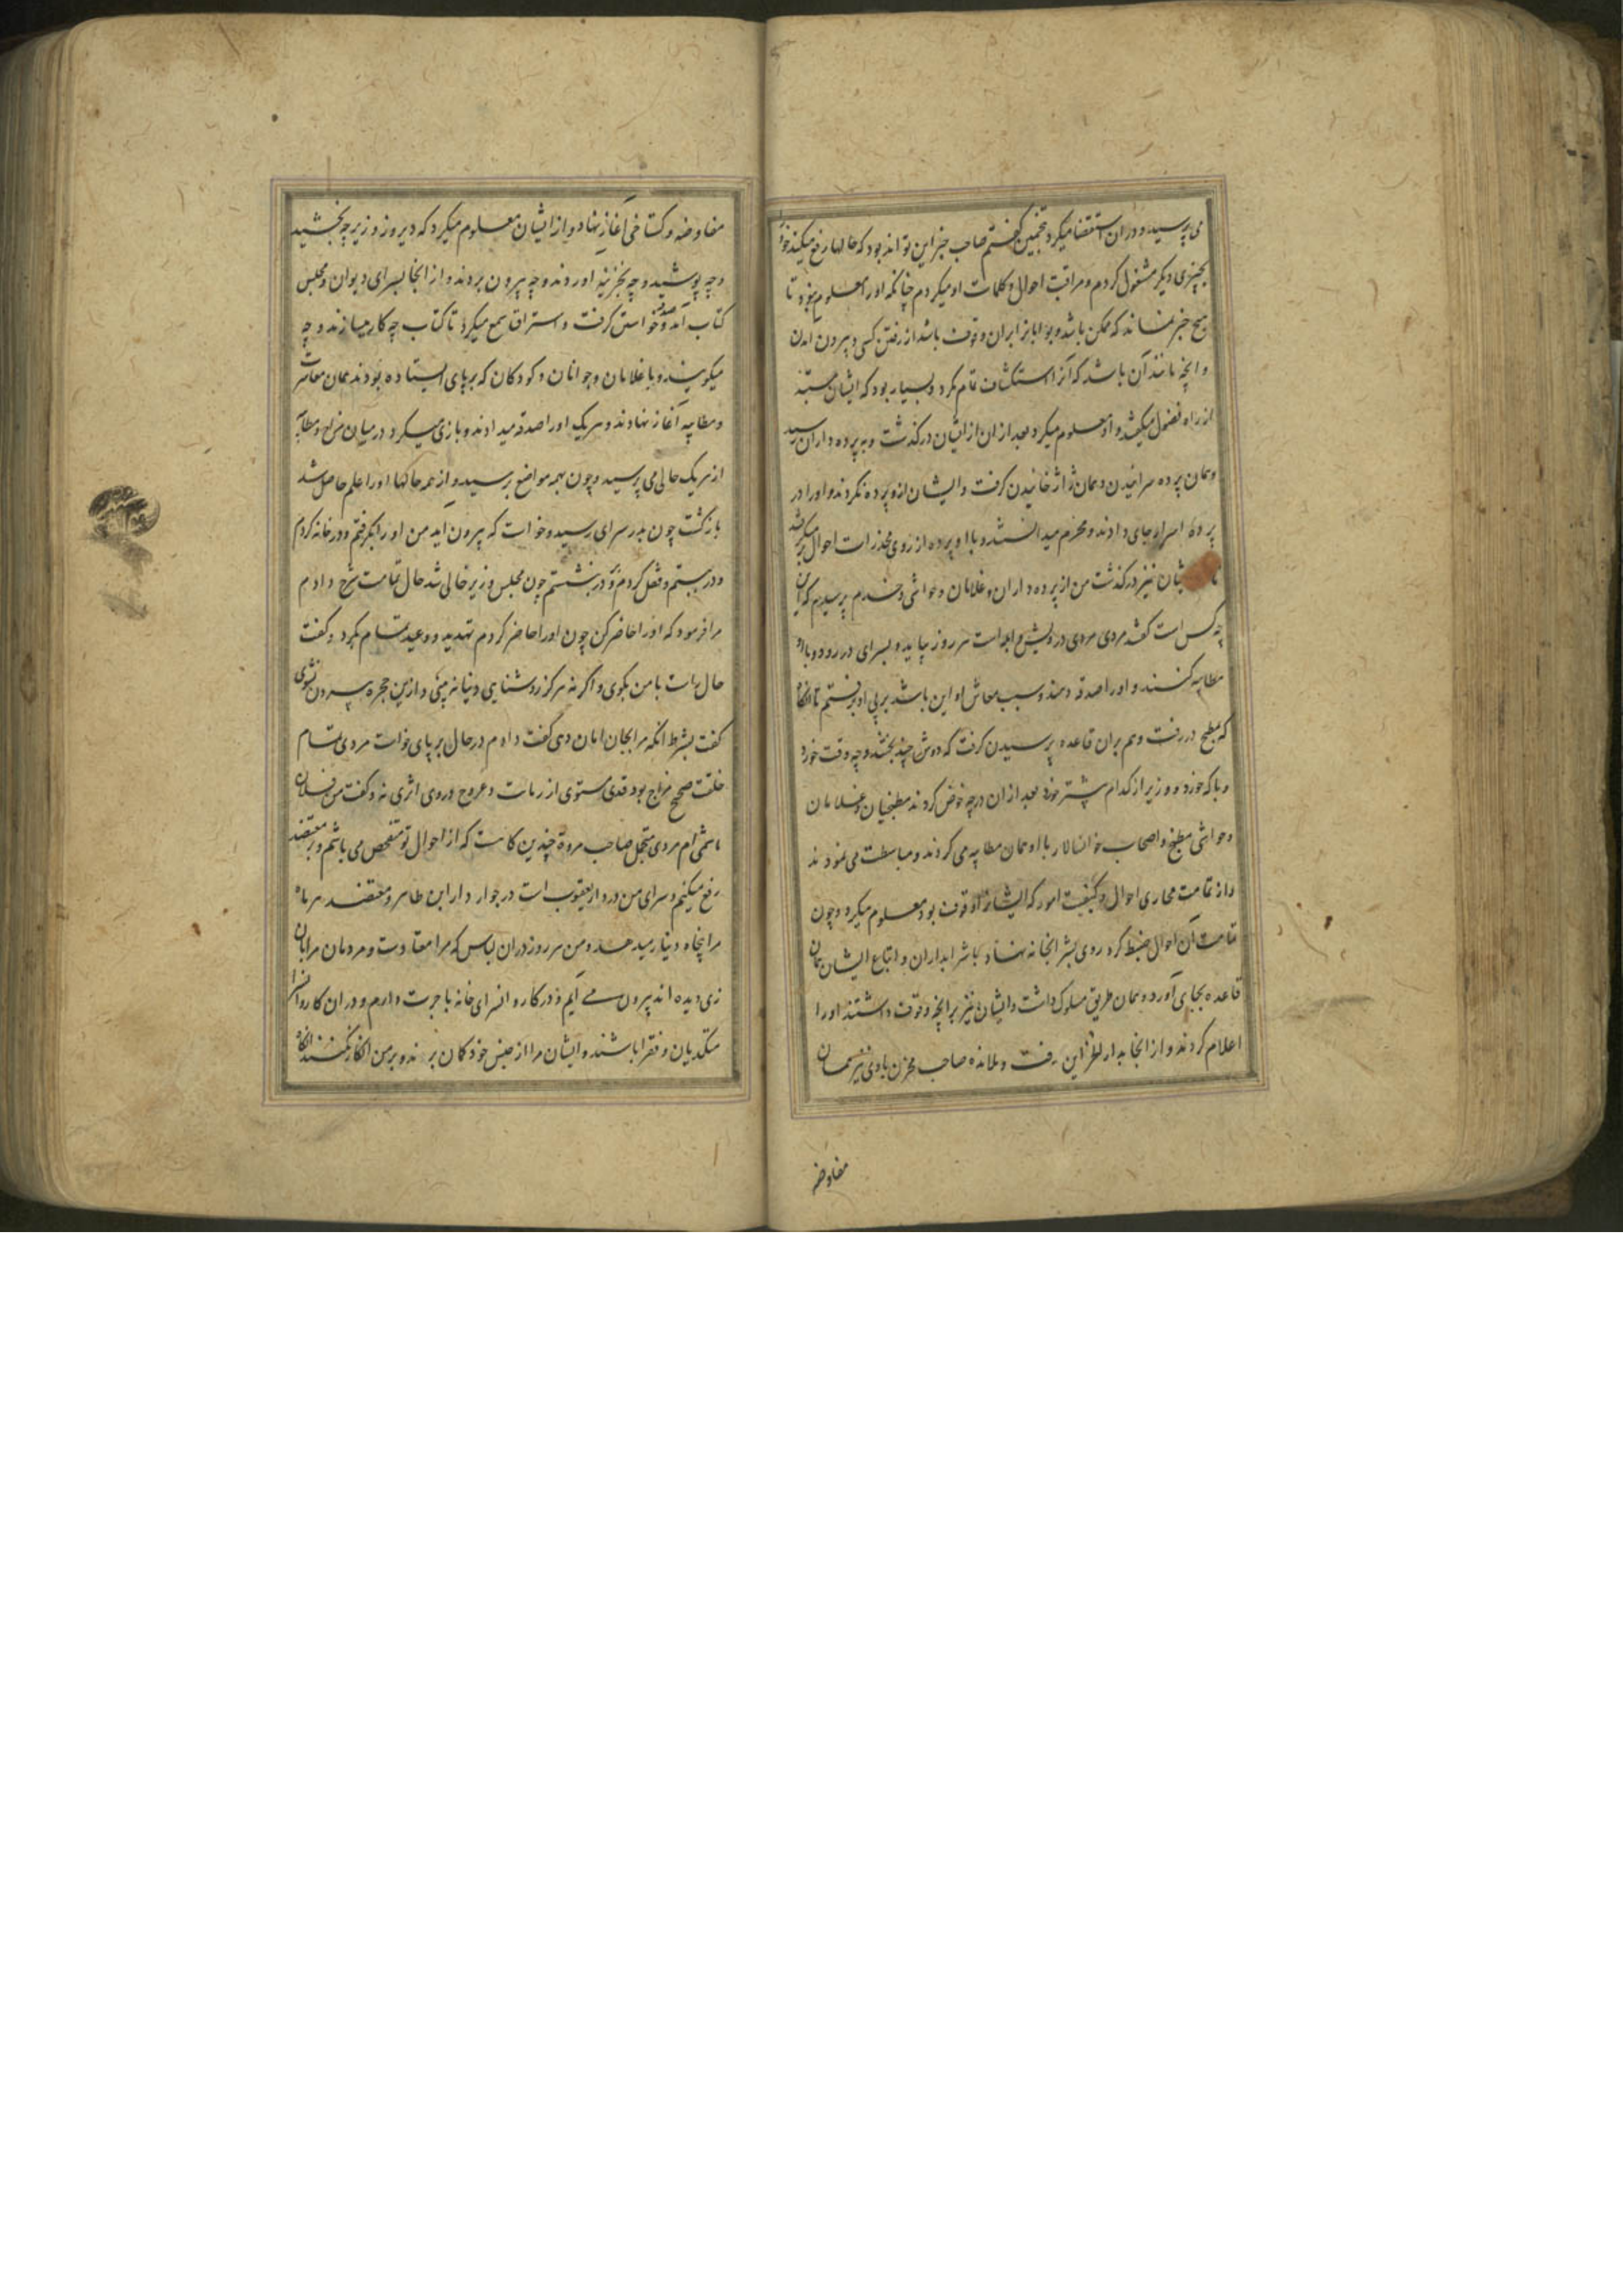 می پرسید و دران استقصا میکرد بتخمین گفتم صاحب خبر این تواند بود که حالها رفع میکند خود را
بچیزی دیکر مشغول کردم و مراقبت احوال و کلمات او میکردم چنانکه او را معلوم نبود تا
هیچ خبر نماند که ممکن باشد و بوابانرا بران وقوف باشد از رفتن کسی و بیرون آمدن
و انچه مانند آن باشد که آنرا استکشاف تمام نکرد و بسیار بود که ایشان
از راه فضول میکفتند و او معلوم میکرد بعد از ان از ایشان درکذشت و به پرده داران رسید
و همان پرده سرانیدن و همان ژاژ خائیدن کرفت و ایشان ازو پرده نکردند و او را در
پرده اسرار جای دادند و محرم میدانستند و با او پرده از روی مخدرات احوال برمیکرفتند
تا از یشان نیز درکذشت من از پرده داران و غلامان و حواشی و خدم پرسیدم که این
چه کس است کفتند مردی درویش و ابله است هر روز بیاید و بسرای در رود و با او
مطایبه کنند و او را صدقه دهند و سبب معاش او این باشد بر پی او برفتم تا انکاه
که بمطبخ در رفت و هم بران قاعده پرسیدن کرفت که دوش چه پختند و چه وقت خورد
و با که خورد و وزیر از کدام بیشتر خورد بعد از ان در چه خوض کردند مطبخیان و غلامان
و حواشی مطبخ و اصحاب خوانسالار با او همان مطایبه می کردند و مباسطت می نمودند
و از تمامت مجاری احوال و کیفیت امور که ایشانرا وقوف بود معلوم میکرد و چون
تمامت آن احوال ضبط کرد روی بشرابخانه نهاد و با شرابداران و اتباع ایشان همان
قاعده بجای آورد و همان طریق مسلوک داشت و ایشان نیز بر انچه وقوف داشتند او را
اعلام کردند و از انجا بدار الخزاین رفت و تلامذه صاحب مخزن با وی نیز همان
مفاوضه
مفاوضه و کستاخی آغاز نهاد و از ایشان معلوم میکرد که دیروز وزیر چه بخشید
و چه پوشید و چه بخزینه اوردند و چه بیرون بردند و از انجا بسرای دیوان و مجلس
کتاب آمد و صدقه خواستن کرفت و استراق سمع میکرد تا کتاب چه کار میسازند و چه
میکویند و با غلامان و جوانان و کودکان که بر پای ایستاده بودند همان معاشرت
و مطایبه آغاز نهادند و هریک او را صدقه میدادند و بازی میکرد در میان مزاح و مطایبه
از هریک حالی می پرسید و چون بهمه مواضع برسید و از همه حالها او را علم حاصل شد
باز کشت چون بدر سرای رسید و خواست که بیرون آید من او را بکرفتم و در خانه کردم
و در ببستم و قفل کردم و بر در بنشستم چون مجلس وزیر خالی شد حال تمامت شرح دادم
مرا فرمود که او را حاضر کن چون او را حاضر کردم تهدید و وعید تمام بکرد و کفت
حال راست با من بکوی و اکر نه هرکز روشنایی دنیا نه بینی و ازین حجره بیرون نشوی
کفت بشرط انکه مرا بجان امان دهی کفت دادم در حال بر پای خواست مردی تمام
خلقت صحیح مزاج بود قدی مستوی از زمانت و عروج در وی اثری نه و کفت من فلان
هاشمی ام مردی متجمل صاحب مروة چندین کاهست که از احوال تو متفحص می باشم و بر معتضد
رفع میکنم و سرای من در دار یعقوب است در جوار دار ابن طاهر و معتضد هر ماه
مرا پنجاه دینار میدهد و من هر روز دران لباس که مرا معتادست و مردمان مرا بدان
زی دیده اند بیرون می آیم و در کاروانسرای خانه باجرت دارم و دران کاروانسرا
متکدیان و فقرا باشند و ایشان مرا از جنس خود کان برند و بر من انکار نکنند انکاه